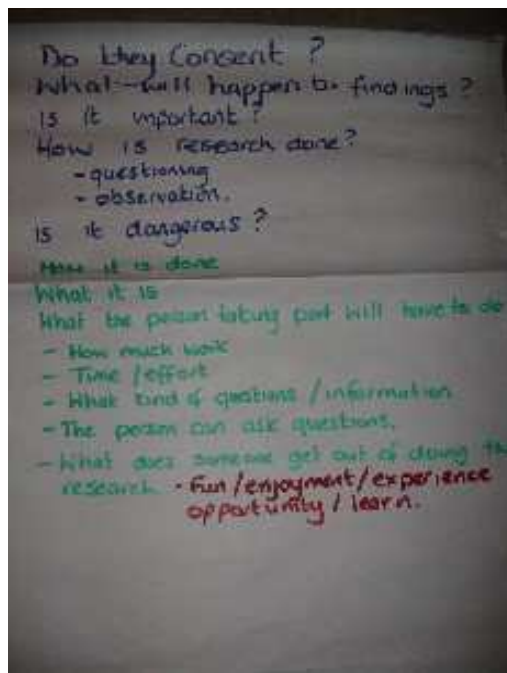 Do they Consent ?
What will happen to findings ?
Is it important ?
How is research done?
- questioning
- observation.
is it dangerous ?
How it is done
What it is
What the person taking part will have to do
- How much work
- Time / effort
- What kind of questions / information
- The person can ask questions.
- What does someone get out of doing the
research. • Fun / enjoyment / experience
opportunity / learn.